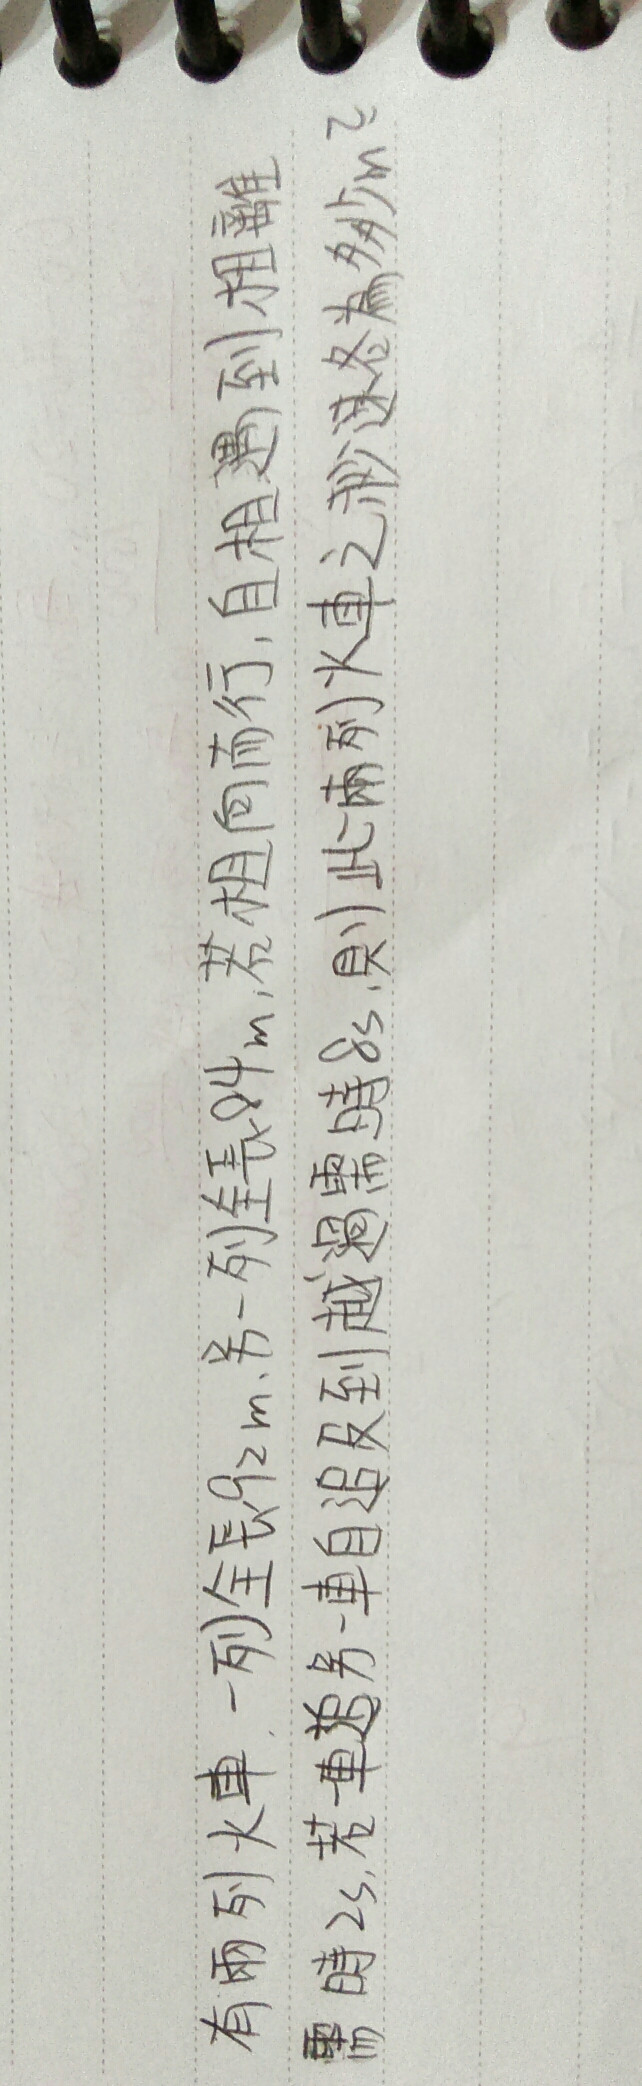 有兩列火車,一列全長92m,另一列全長84m,若相向而行,自相遇到相離
需時2s,若一車越另一車自追及到越過需時8s,則此兩列火車之秒速各為多少m?